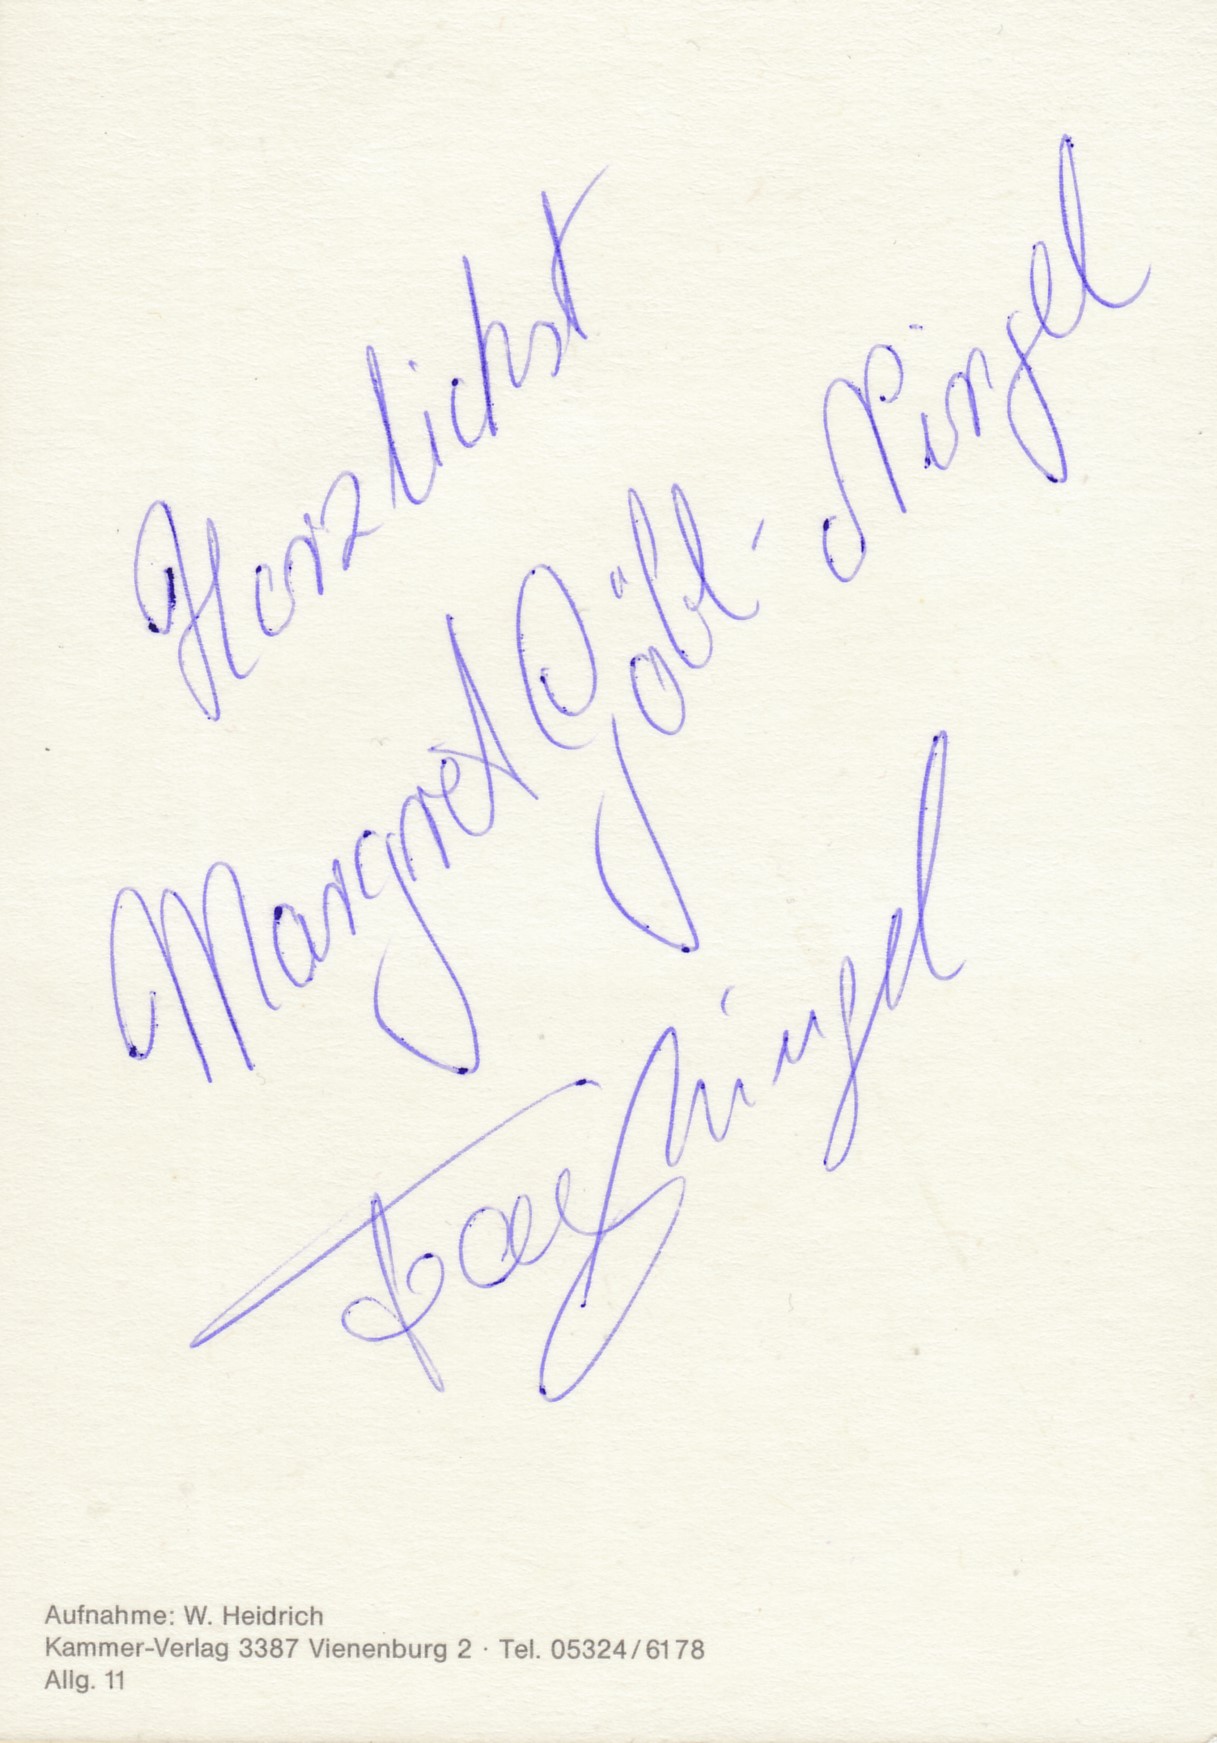 Herzlichst
Margret Göbl-Ningel
Franz Ningel
Aufnahme: W. Heidrich
Kammer-Verlag 3387 Vienenburg 2 · Tel. 05324/6178
Allg. 11